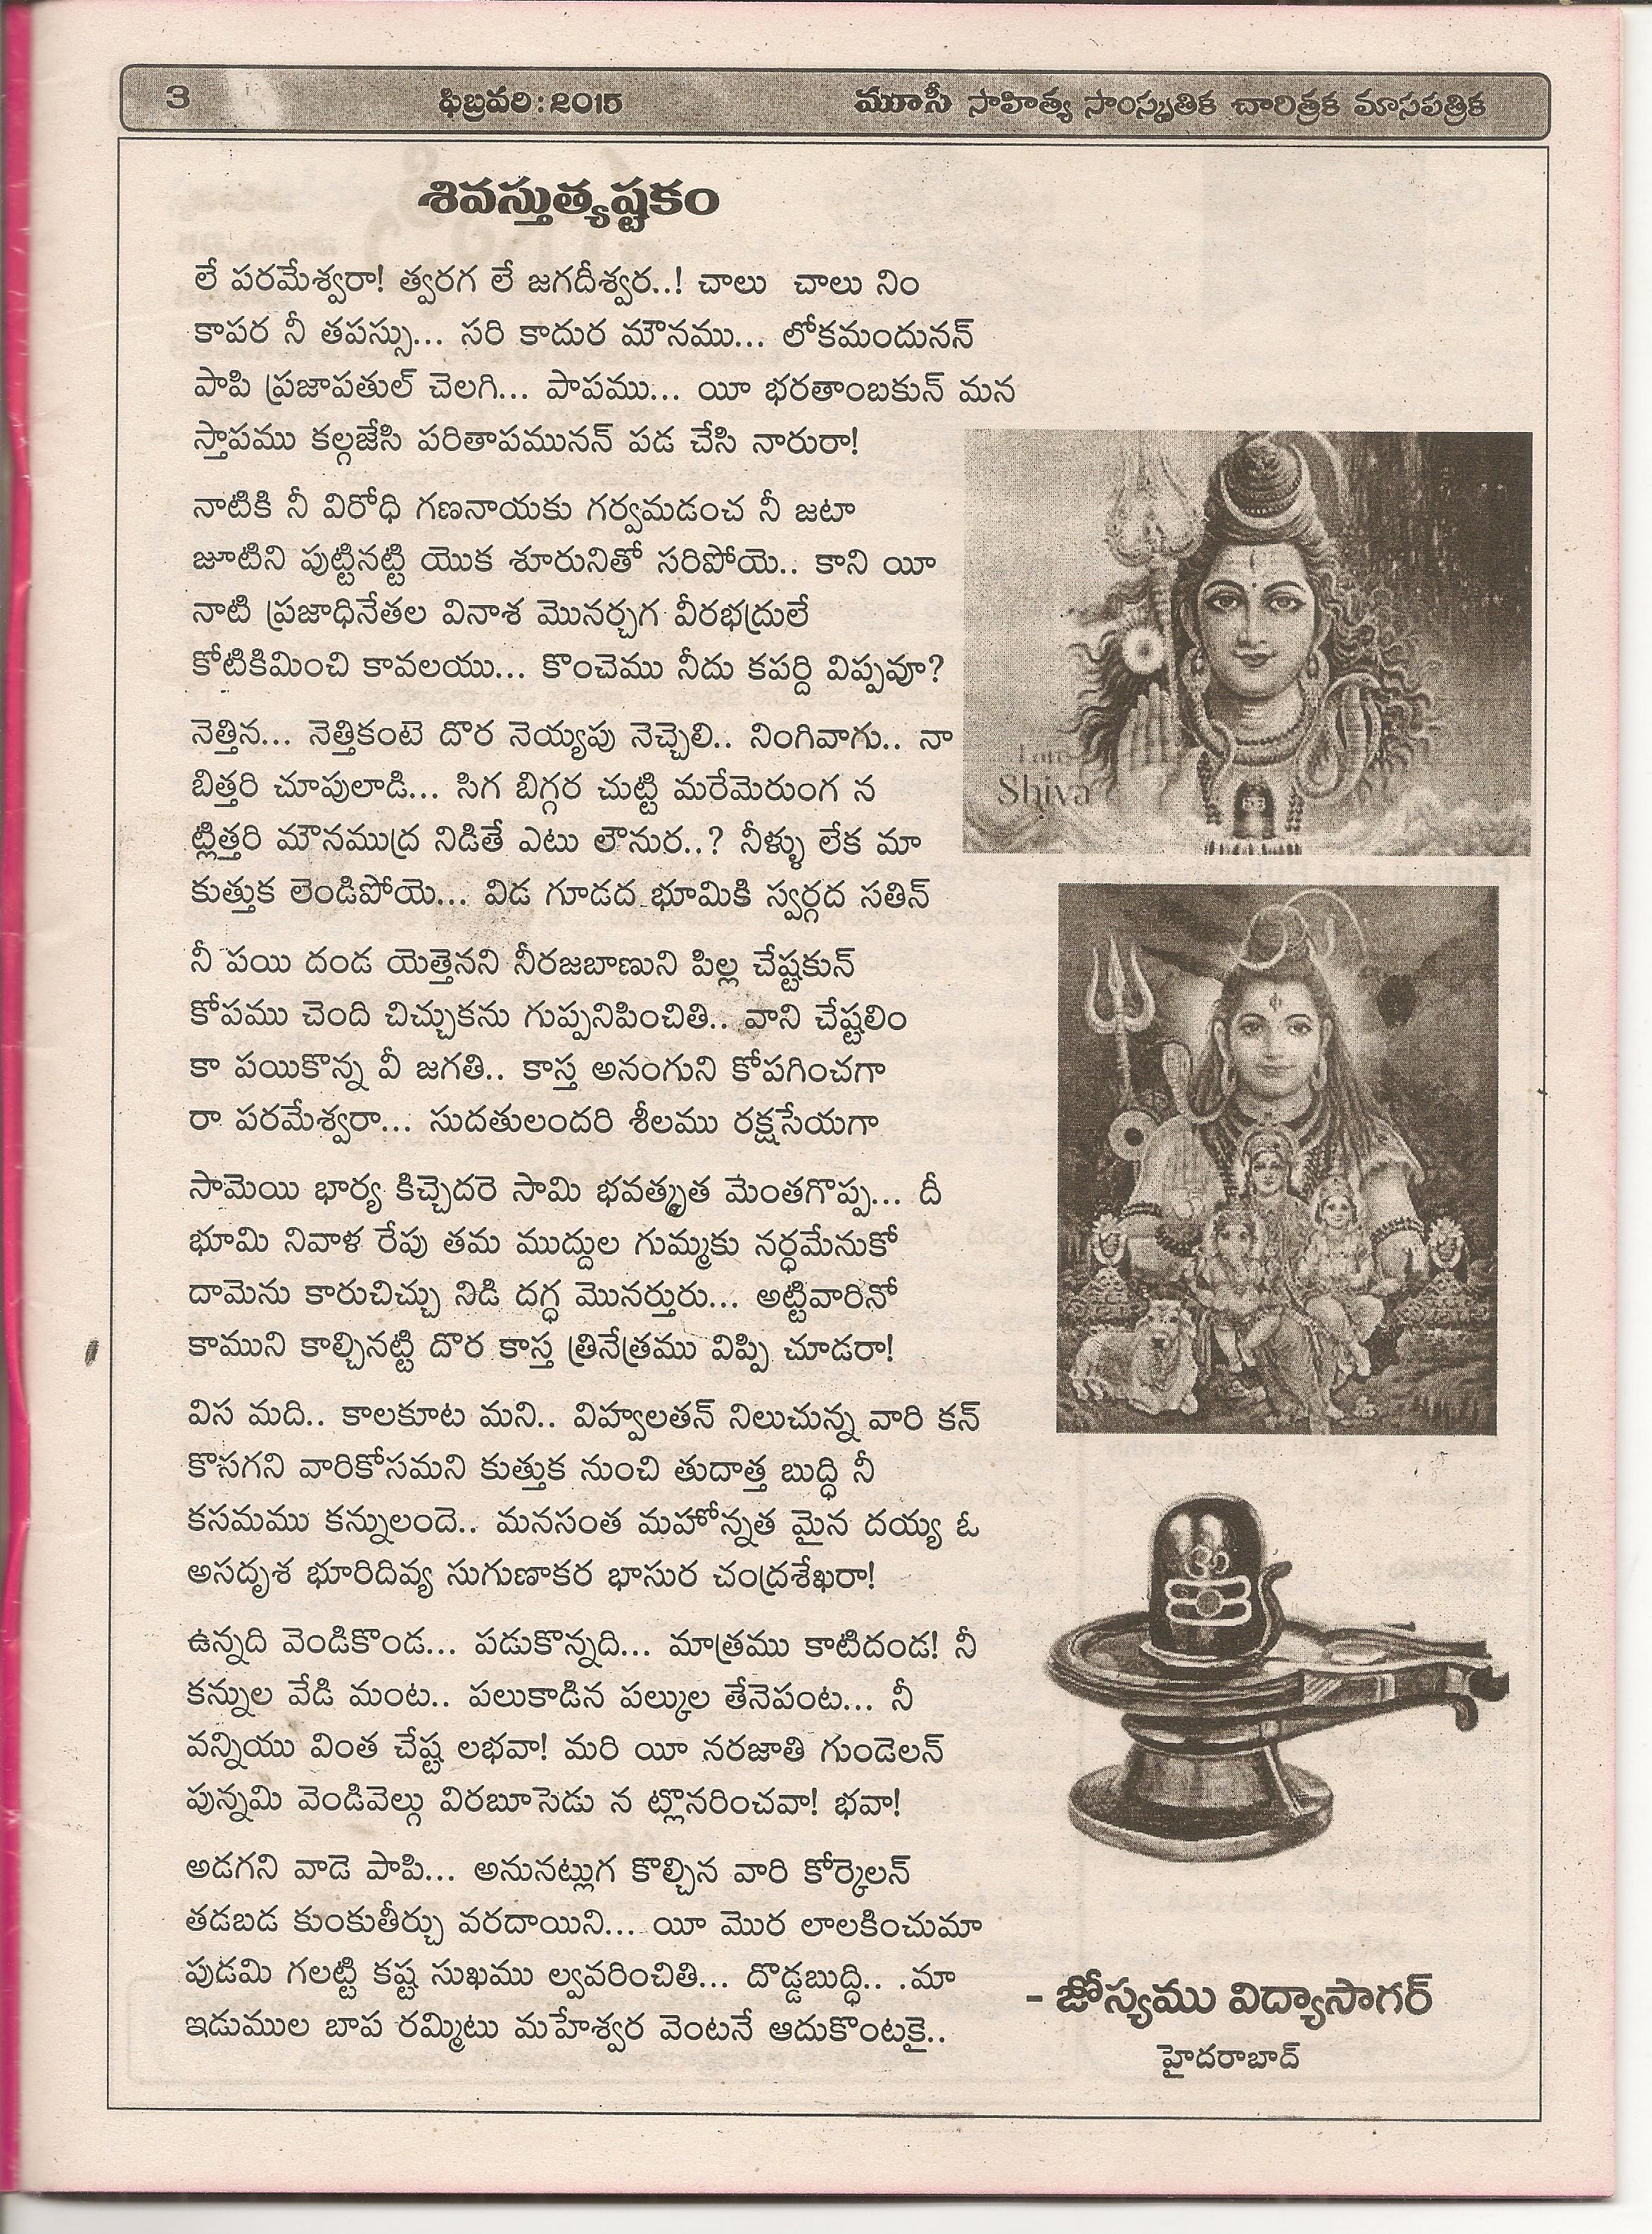 3 ఫిబ్రవరి : 2015 మూసీ సాహిత్య సాంస్కృతిక చారిత్రక మాసపత్రిక
శివస్తుత్యష్టకం
లే పరమేశ్వరా! త్వరగ లే జగదీశ్వర..! చాలు చాలు నిం
కాపర నీ తపస్సు... సరి కాదుర మౌనము... లోకమందునన్
పాపి ప్రజాపతుల్ చెలగి... పాపము... యీ భరతాంబకున్ మన
స్తాపము కల్గజేసి పరితాపమునన్ పడ చేసి నారురా!
నాటికి నీ విరోధి గణనాయకు గర్వమడంచ నీ జటా
జూటిని పుట్టినట్టి యొక శూరునితో సరిపోయె.. కాని యీ
నాటి ప్రజాధినేతల వినాశ మొనర్చగ వీరభద్రులే
కోటికిమించి కావలయు... కొంచెము నీదు కపర్ది విప్పవూ?
నెత్తిన... నెత్తికంటె దొర నెయ్యపు నెచ్చెలి.. నింగివాగు.. నా
బిత్తరి చూపులాడి... సిగ బిగ్గర చుట్టి మరేమెరుంగ న
ట్లిత్తరి మౌనముద్ర నిడితే ఎటు లౌనుర..? నీళ్ళు లేక మా
కుత్తుక లెండిపోయె... విడ గూడద భూమికి స్వర్గద సతిన్
నీ పయి దండ యెత్తెనని నీరజబాణుని పిల్ల చేష్టకున్
కోపము చెంది చిచ్చుకను గుప్పనిపించితి.. వాని చేష్టలిం
కా పయికొన్న వీ జగతి.. కాస్త అనంగుని కోపగించగా
రా పరమేశ్వరా... సుదతులందరి శీలము రక్షసేయగా
సామెయి భార్య కిచ్చెదరె సామి భవత్కృత మేంతగొప్ప... దీ
భూమి నివాళ రేపు తమ ముద్దుల గుమ్మకు నర్ధమేనుకో
దామెను కారుచిచ్చు నిడి దగ్ధ మొనర్తురు... అట్టివారినో
కాముని కాల్చినట్టి దొర కాస్త త్రినేత్రము విప్పి చూడరా!
విస మది.. కాలకూట మని.. విహ్వలతన్ నిలుచున్న వారి కన్
కొసగని వారికోసమని కుత్తుక నుంచి తుదాత్త బుద్ధి నీ
కసమము కన్నులందె.. మనసంత మహోన్నత మైన దయ్య ఓ
అసదృశ భూరిదివ్య సుగుణాకర భాసుర చంద్రశేఖరా!
ఉన్నది వెండికొండ... పడుకొన్నది... మాత్రము కాటిదండ! నీ
కన్నుల వేడి మంట.. పలుకాడిన పల్కుల తేనెపంట... నీ
వన్నియు వింత చేష్ట లభవా! మరి యీ నరజాతి గుండెలన్
పున్నమి వెండివెల్గు విరబూసెడు న ట్లొనరించవా! భవా!
అడగని వాడె పాపి... అనునట్లుగ కొల్చిన వారి కోర్కెలన్
తడబడ కుంకుతీర్చు వరదాయిని... యీ మొర లాలకించుమా
పుడమి గలట్టి కష్ట సుఖము ల్వవరించితి... దొడ్డబుద్ధి.. .మా
ఇడుముల బాప రమ్మిటు మహేశ్వర వెంటనే ఆదుకొంటకై..
Shiva
- జోస్యము విద్యాసాగర్
హైదరాబాద్